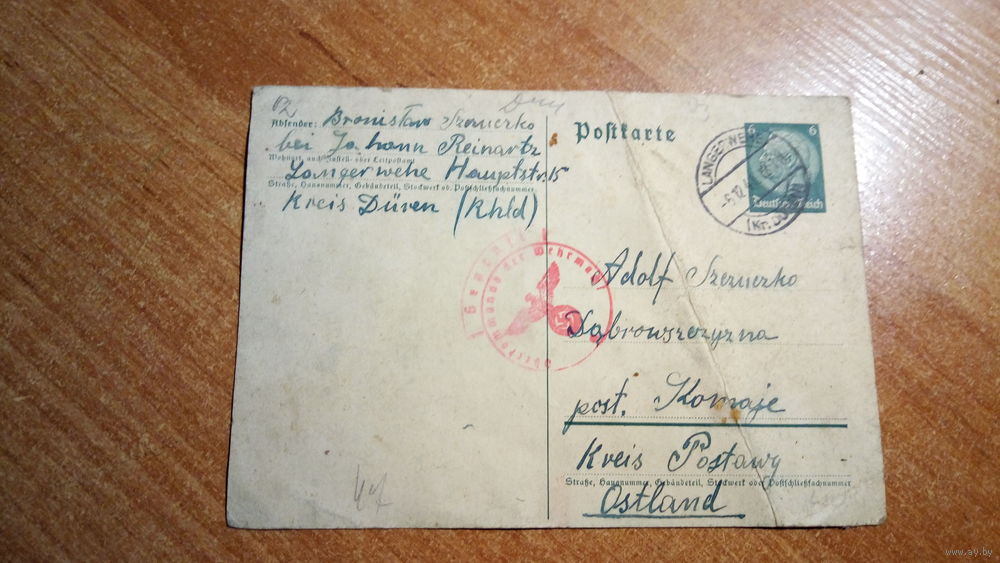 02
Absender: Bronisław Szeruczko
bei Johann Reinartz
Wohnort, auch Zustell- oder Leitpostamt
Langerwehe Hauptstr. 15
Straße, Hausnummer, Gebäudeteil, Stockwerk od. Postschließfachnummer
Kreis Düren (Rhld)
Postkarte
6 6
Deutsches Reich
LANGERWEHE
-6.12.
(Kr. DÜREN)
Geprüft
Oberkommando der Wehrmacht
Adolf Szeruczko
Dąbrowszczyzna
post. Komaje
Kreis Postawy
Straße, Hausnummer, Gebäudeteil, Stockwerk oder Postschließfachnummer
Ostland
www.ay.by